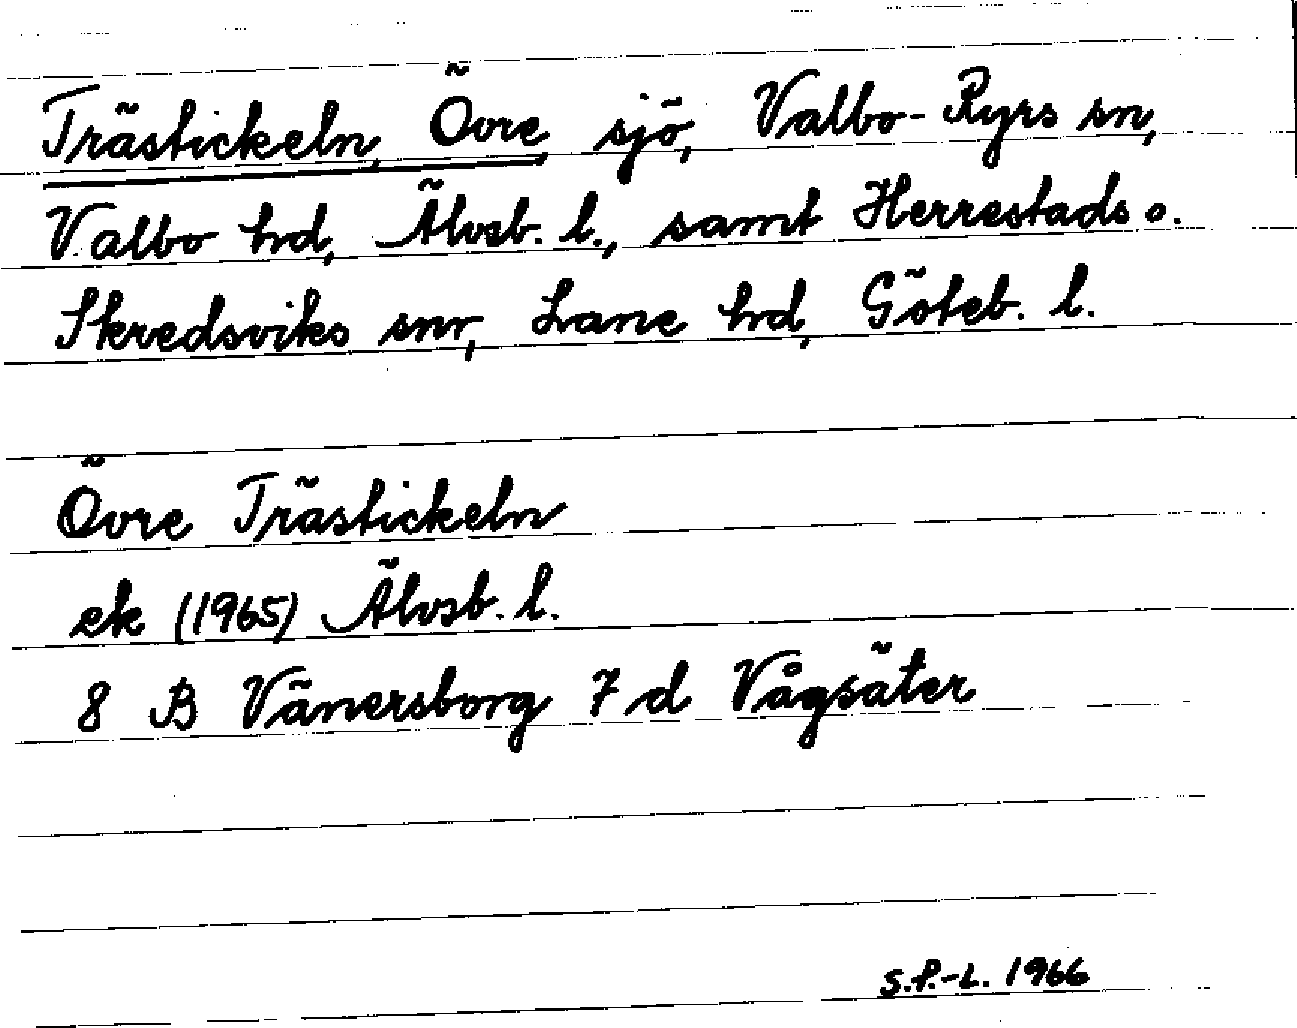 Trästickeln, Övre, sjö, Valbo-Ryrs sn,
Valbo hd, Älvsb. l., samt Herrestads o.
Skredsviks snr, Lane hd, Göteb. l.
Övre Trästickeln
ek (1965) Älvsb. l.
8 B Vänersborg 7 d Vågsäter
S.P.-L. 1966